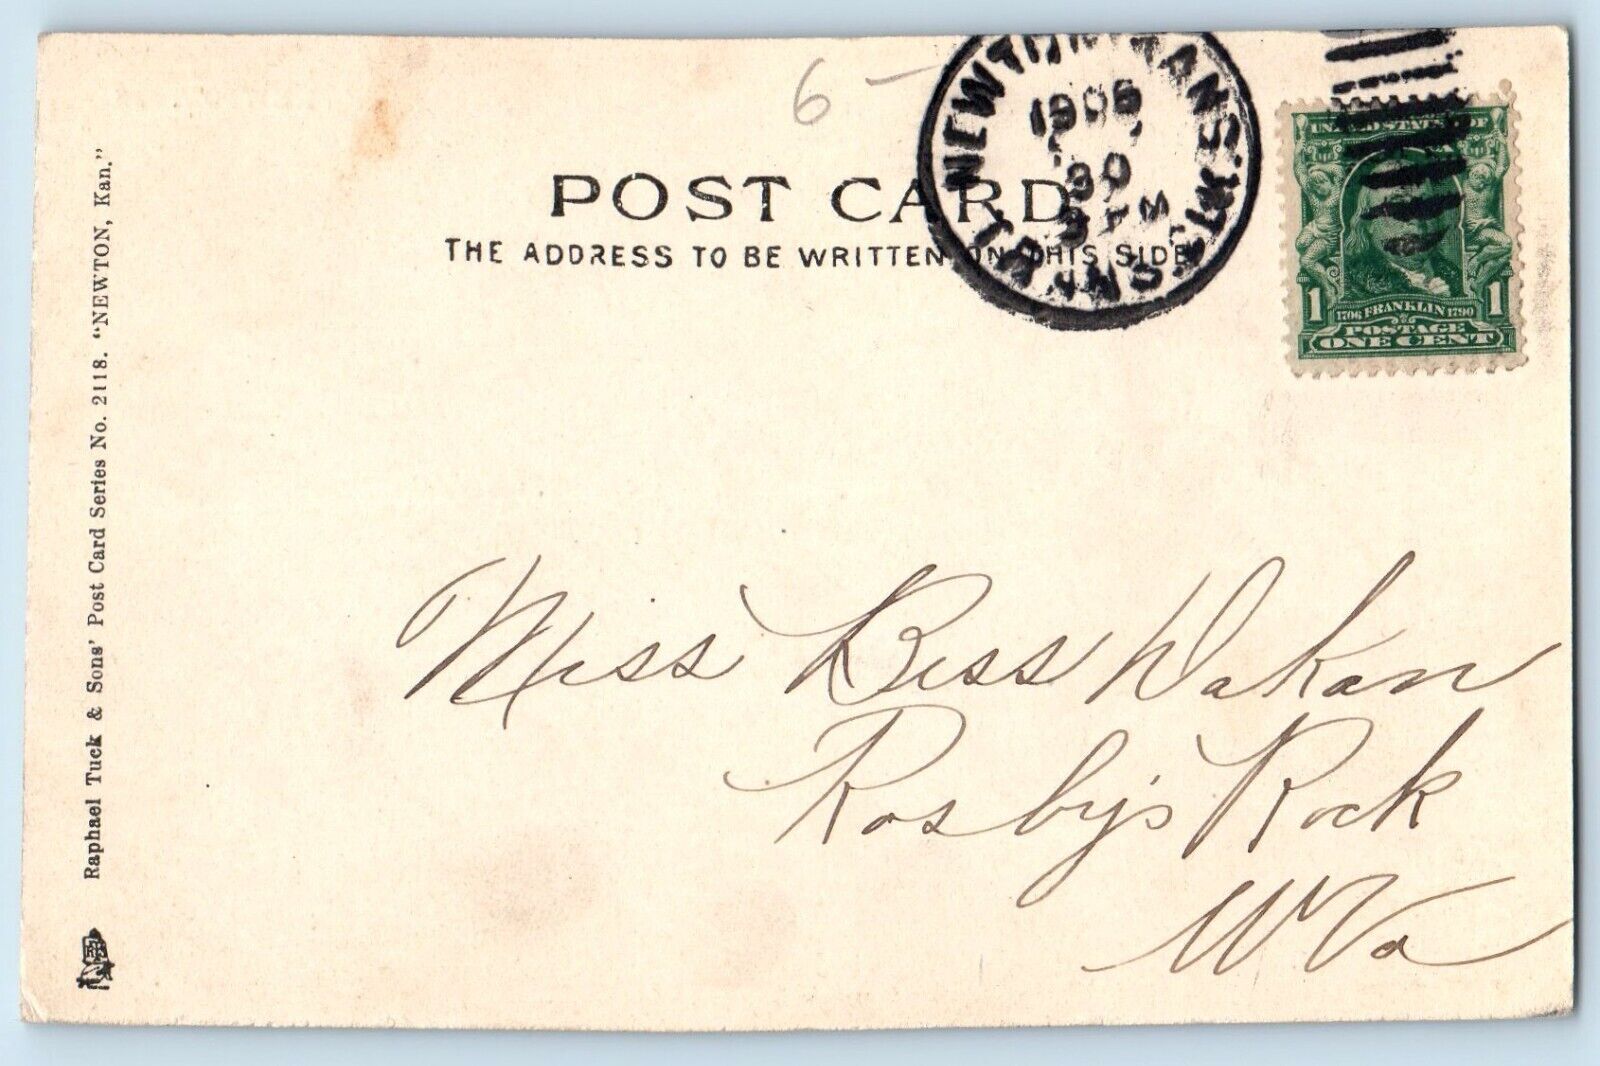 6 —
NEWTON, KANS.
1906
30
PM
POST CARD
THE ADDRESS TO BE WRITTEN ON THIS SIDE
UNITED STATES OF
1 1706 FRANKLIN 1790 1
POSTAGE
ONE CENT
Raphael Tuck & Sons' Post Card Series No. 2118. "NEWTON, Kan."
Miss Bess Wakan
Rosby's Rock
W Va